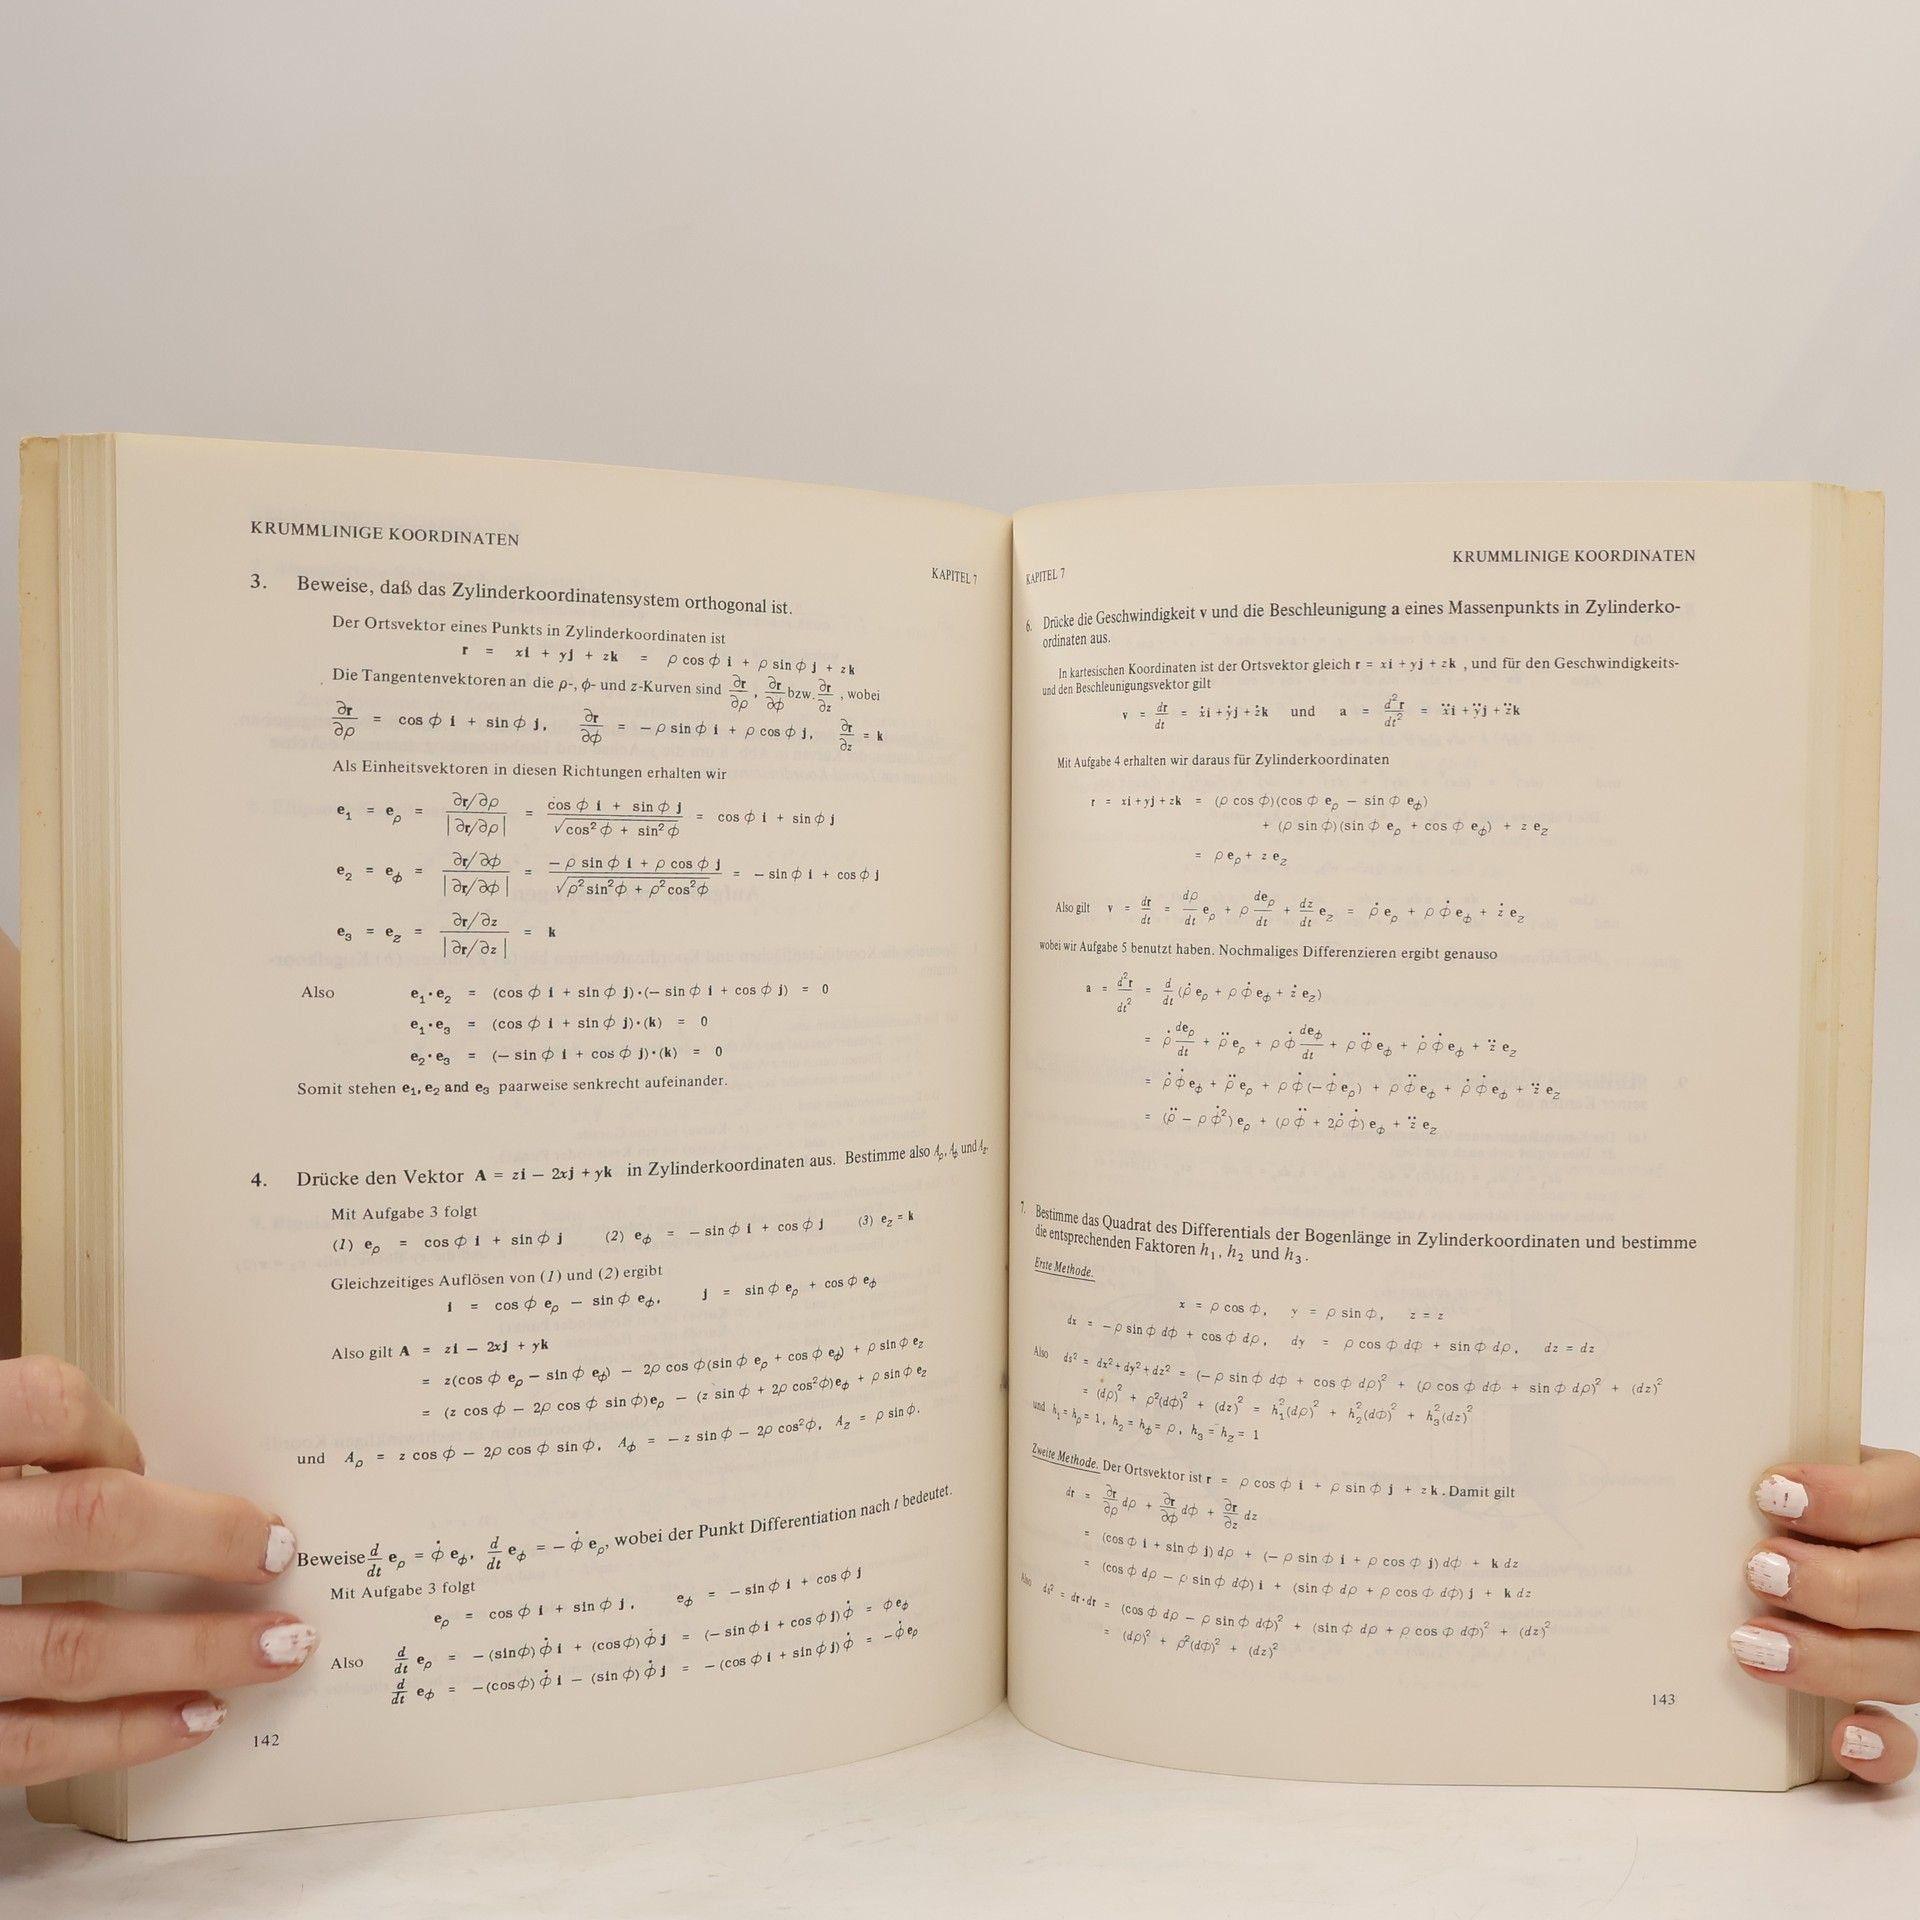 KRUMMLINIGE KOORDINATEN
KAPITEL 7
3. Beweise, daß das Zylinderkoordinatensystem orthogonal ist.
Der Ortsvektor eines Punkts in Zylinderkoordinaten ist
r = xi + yj + zk = ρ cos ϕ i + ρ sin ϕ j + zk
Die Tangentenvektoren an die ρ-, ϕ- und z-Kurven sind ∂r/∂ρ, ∂r/∂ϕ bzw. ∂r/∂z, wobei
∂r/∂ρ = cos ϕ i + sin ϕ j, ∂r/∂ϕ = −ρ sin ϕ i + ρ cos ϕ j, ∂r/∂z = k
Als Einheitsvektoren in diesen Richtungen erhalten wir
e₁ = e_ρ = (∂r/∂ρ)/|∂r/∂ρ| = (cos ϕ i + sin ϕ j)/√(cos² ϕ + sin² ϕ) = cos ϕ i + sin ϕ j
e₂ = e_ϕ = (∂r/∂ϕ)/|∂r/∂ϕ| = (−ρ sin ϕ i + ρ cos ϕ j)/√(ρ² sin² ϕ + ρ² cos² ϕ) = −sin ϕ i + cos ϕ j
e₃ = e_z = (∂r/∂z)/|∂r/∂z| = k
Also e₁·e₂ = (cos ϕ i + sin ϕ j)·(−sin ϕ i + cos ϕ j) = 0
e₁·e₃ = (cos ϕ i + sin ϕ j)·(k) = 0
e₂·e₃ = (−sin ϕ i + cos ϕ j)·(k) = 0
Somit stehen e₁, e₂ and e₃ paarweise senkrecht aufeinander.
4. Drücke den Vektor A = zi − 2xj + yk in Zylinderkoordinaten aus. Bestimme also A_ρ, A_ϕ und A_z.
Mit Aufgabe 3 folgt
(1) e_ρ = cos ϕ i + sin ϕ j (2) e_ϕ = −sin ϕ i + cos ϕ j (3) e_z = k
Gleichzeitiges Auflösen von (1) und (2) ergibt
i = cos ϕ e_ρ − sin ϕ e_ϕ, j = sin ϕ e_ρ + cos ϕ e_ϕ
Also gilt A = zi − 2xj + yk
= z(cos ϕ e_ρ − sin ϕ e_ϕ) − 2ρ cos ϕ(sin ϕ e_ρ + cos ϕ e_ϕ) + ρ sin ϕ e_z
= (z cos ϕ − 2ρ cos ϕ sin ϕ)e_ρ − (z sin ϕ + 2ρ cos²ϕ)e_ϕ + ρ sin ϕ e_z
und A_ρ = z cos ϕ − 2ρ cos ϕ sin ϕ, A_ϕ = −z sin ϕ − 2ρ cos²ϕ, A_z = ρ sin ϕ.
Beweise d/dt e_ρ = ϕ̇ e_ϕ, d/dt e_ϕ = −ϕ̇ e_ρ, wobei der Punkt Differentiation nach t bedeutet.
Mit Aufgabe 3 folgt
e_ρ = cos ϕ i + sin ϕ j, e_ϕ = −sin ϕ i + cos ϕ j
Also d/dt e_ρ = −(sin ϕ) ϕ̇ i + (cos ϕ) ϕ̇ j = (−sin ϕ i + cos ϕ j) ϕ̇ = ϕ̇ e_ϕ
d/dt e_ϕ = −(cos ϕ) ϕ̇ i − (sin ϕ) ϕ̇ j = −(cos ϕ i + sin ϕ j) ϕ̇ = −ϕ̇ e_ρ
142
KAPITEL 7
KRUMMLINIGE KOORDINATEN
6. Drücke die Geschwindigkeit v und die Beschleunigung a eines Massenpunkts in Zylinderko-
ordinaten aus.
In kartesischen Koordinaten ist der Ortsvektor gleich r = xi + yj + zk , und für den Geschwindigkeits-
und den Beschleunigungsvektor gilt
v = dr/dt = ẋi + ẏj + żk und a = d²r/dt² = ẍi + ÿj + z̈k
Mit Aufgabe 4 erhalten wir daraus für Zylinderkoordinaten
r = xi + yj + zk = (ρ cos ϕ)(cos ϕ e_ρ − sin ϕ e_ϕ)
+ (ρ sin ϕ)(sin ϕ e_ρ + cos ϕ e_ϕ) + z e_z
= ρ e_ρ + z e_z
Also gilt v = dr/dt = dρ/dt e_ρ + ρ de_ρ/dt + dz/dt e_z = ρ̇ e_ρ + ρ ϕ̇ e_ϕ + ż e_z
wobei wir Aufgabe 5 benutzt haben. Nochmaliges Differenzieren ergibt genauso
a = d²r/dt² = d/dt (ρ̇ e_ρ + ρ ϕ̇ e_ϕ + ż e_z)
= ρ̇ de_ρ/dt + ρ̈ e_ρ + ρ ϕ̇ de_ϕ/dt + ρ ϕ̈ e_ϕ + ρ̇ ϕ̇ e_ϕ + z̈ e_z
= ρ̇ ϕ̇ e_ϕ + ρ̈ e_ρ + ρ ϕ̇ (−ϕ̇ e_ρ) + ρ ϕ̈ e_ϕ + ρ̇ ϕ̇ e_ϕ + z̈ e_z
= (ρ̈ − ρ ϕ̇²) e_ρ + (ρ ϕ̈ + 2ρ̇ ϕ̇) e_ϕ + z̈ e_z
7. Bestimme das Quadrat des Differentials der Bogenlänge in Zylinderkoordinaten und bestimme
die entsprechenden Faktoren h₁, h₂ und h₃.
Erste Methode.
x = ρ cos ϕ, y = ρ sin ϕ, z = z
dx = −ρ sin ϕ dϕ + cos ϕ dρ, dy = ρ cos ϕ dϕ + sin ϕ dρ, dz = dz
Also ds² = dx² + dy² + dz² = (−ρ sin ϕ dϕ + cos ϕ dρ)² + (ρ cos ϕ dϕ + sin ϕ dρ)² + (dz)²
= (dρ)² + ρ²(dϕ)² + (dz)² = h₁²(dρ)² + h₂²(dϕ)² + h₃²(dz)²
und h₁ = h_ρ = 1, h₂ = h_ϕ = ρ, h₃ = h_z = 1
Zweite Methode. Der Ortsvektor ist r = ρ cos ϕ i + ρ sin ϕ j + zk. Damit gilt
dr = ∂r/∂ρ dρ + ∂r/∂ϕ dϕ + ∂r/∂z dz
= (cos ϕ i + sin ϕ j) dρ + (−ρ sin ϕ i + ρ cos ϕ j) dϕ + k dz
= (cos ϕ dρ − ρ sin ϕ dϕ) i + (sin ϕ dρ + ρ cos ϕ dϕ) j + k dz
Also ds² = dr·dr = (cos ϕ dρ − ρ sin ϕ dϕ)² + (sin ϕ dρ + ρ cos ϕ dϕ)² + (dz)²
= (dρ)² + ρ²(dϕ)² + (dz)²
143